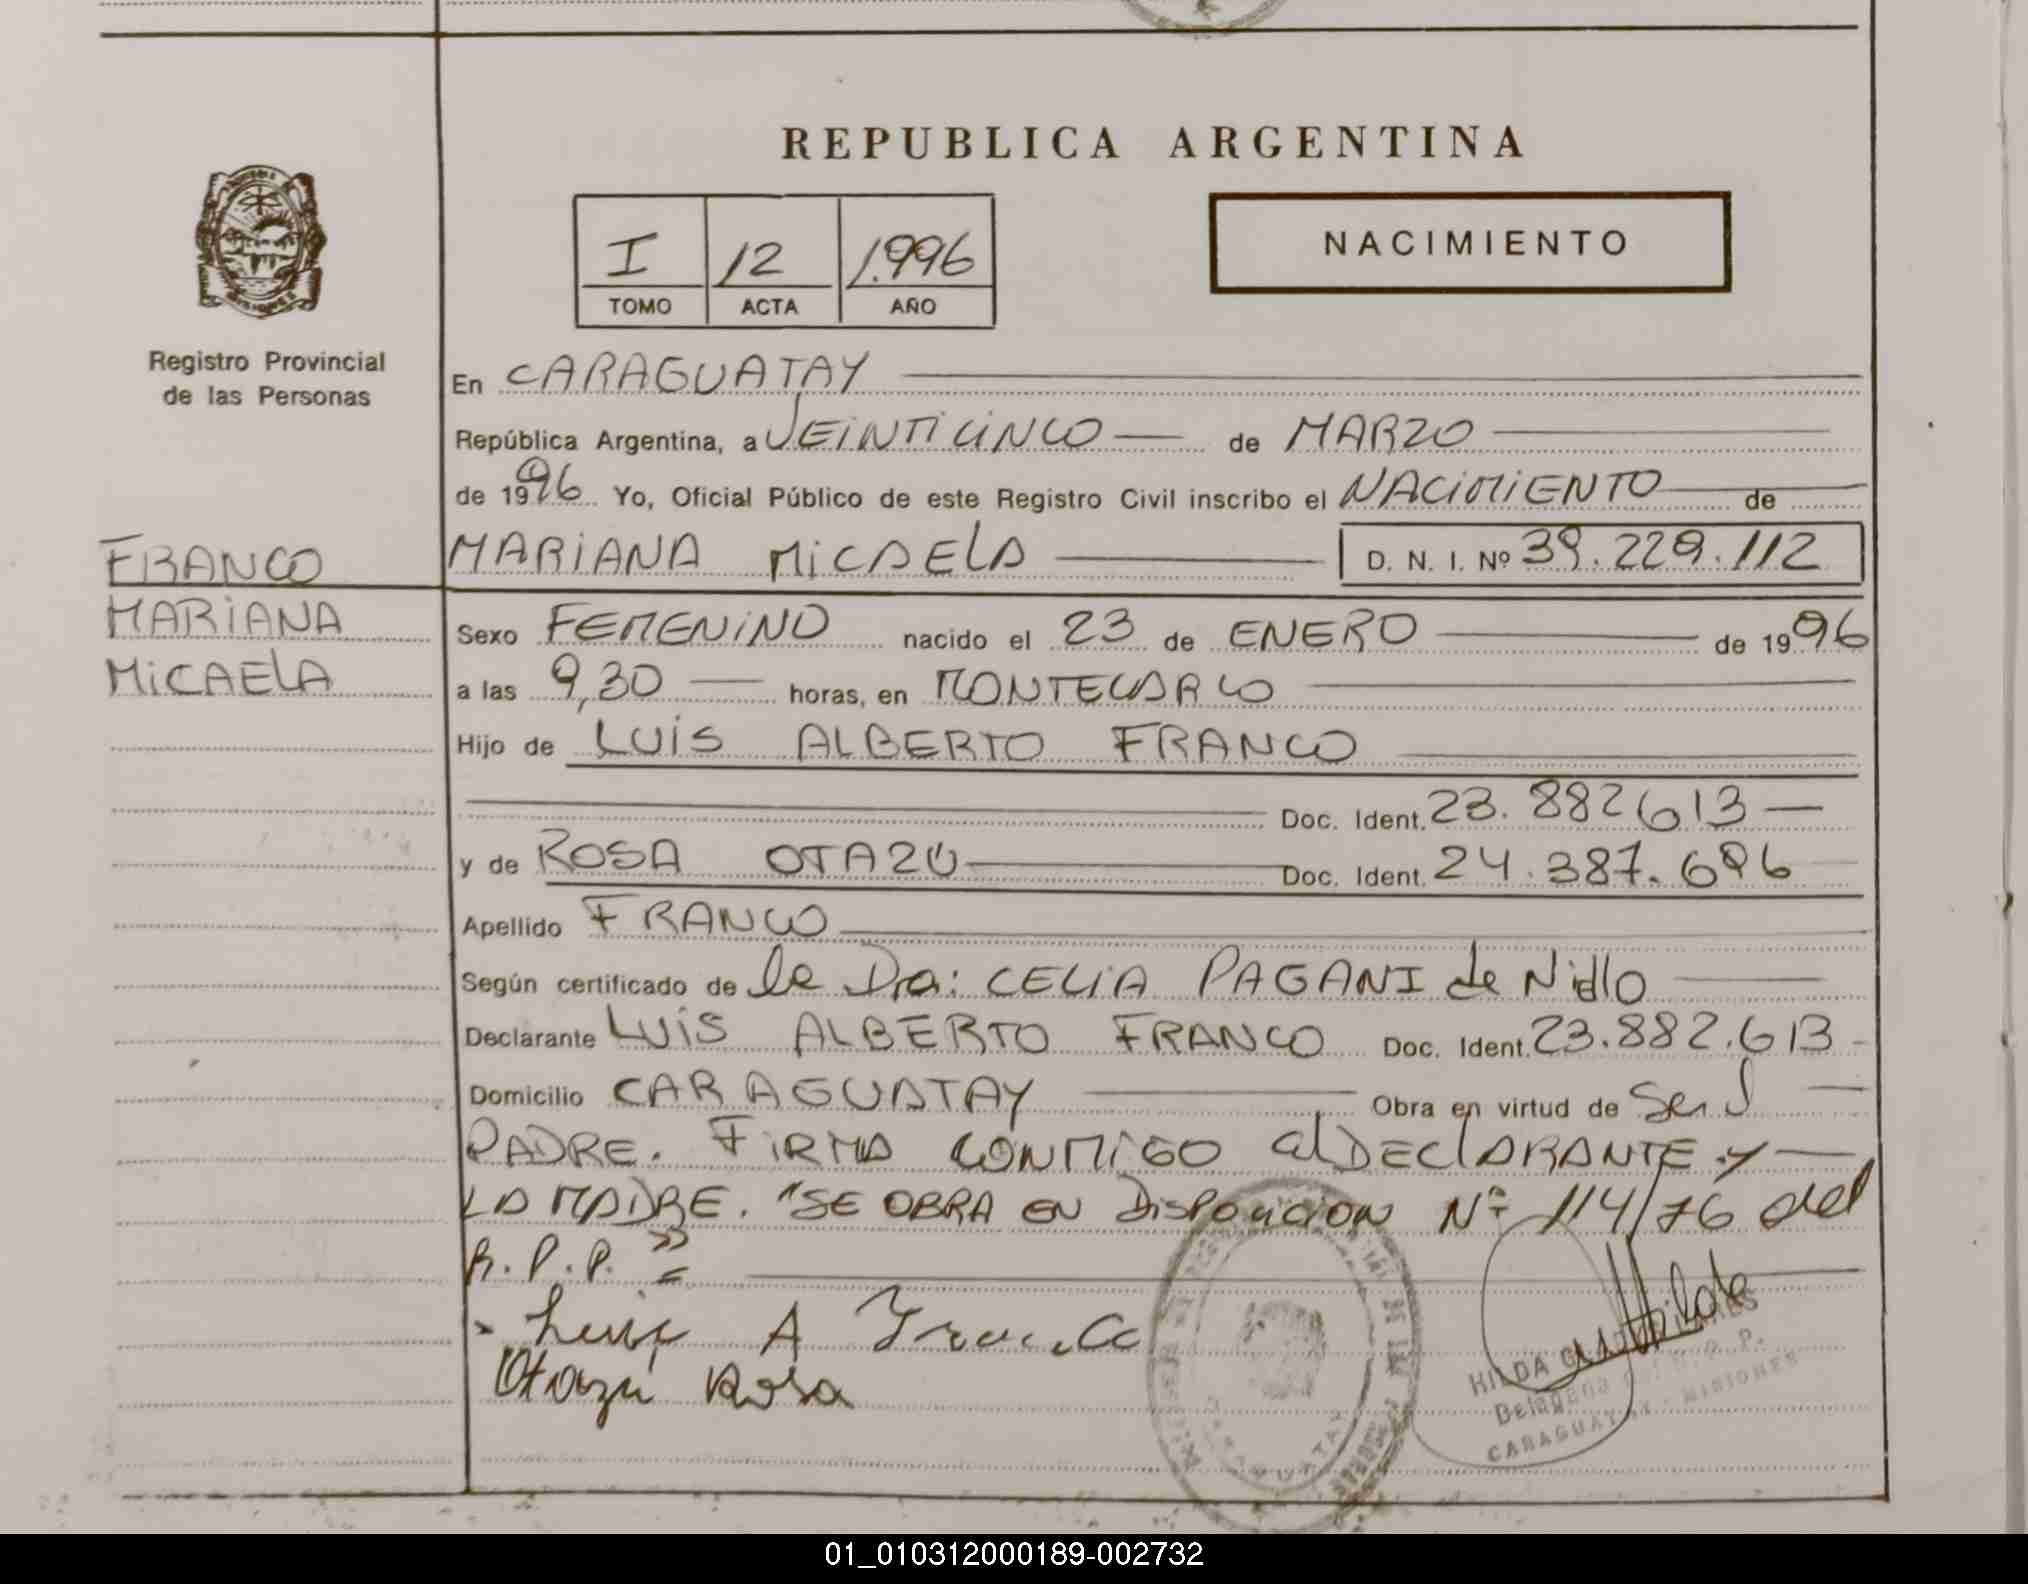 REPUBLICA ARGENTINA
I 12 1.996
TOMO ACTA AÑO
NACIMIENTO
Registro Provincial
de las Personas
FRANCO
MARIANA
MICAELA
En CARAGUATAY
República Argentina, a VEINTICINCO de MARZO
de 1996 Yo, Oficial Público de este Registro Civil inscribo el NACIMIENTO de
MARIANA MICAELA D. N. I. Nº 39.229.112
Sexo FEMENINO nacido el 23 de ENERO de 1996
a las 9,30 horas, en MONTECARLO
Hijo de LUIS ALBERTO FRANCO
Doc. Ident. 23.882613
y de ROSA OTAZÚ Doc. Ident. 24.387.696
Apellido FRANCO
Según certificado de la Dra: CELIA PAGANI de
Declarante LUIS ALBERTO FRANCO Doc. Ident. 23.882.613
Domicilio CARAGUATAY Obra en virtud de Ser el
PADRE. FIRMA CONMIGO el DECLARANTE y
LA MADRE. "SE OBRA EN Disposicion Nº 114/76 del
R.P.P."
Luis A Franco
Otazu Rosa
Hilda
HILDA
Delegada R. P.
CARAGUATAY - MISIONES
01_010312000189-002732